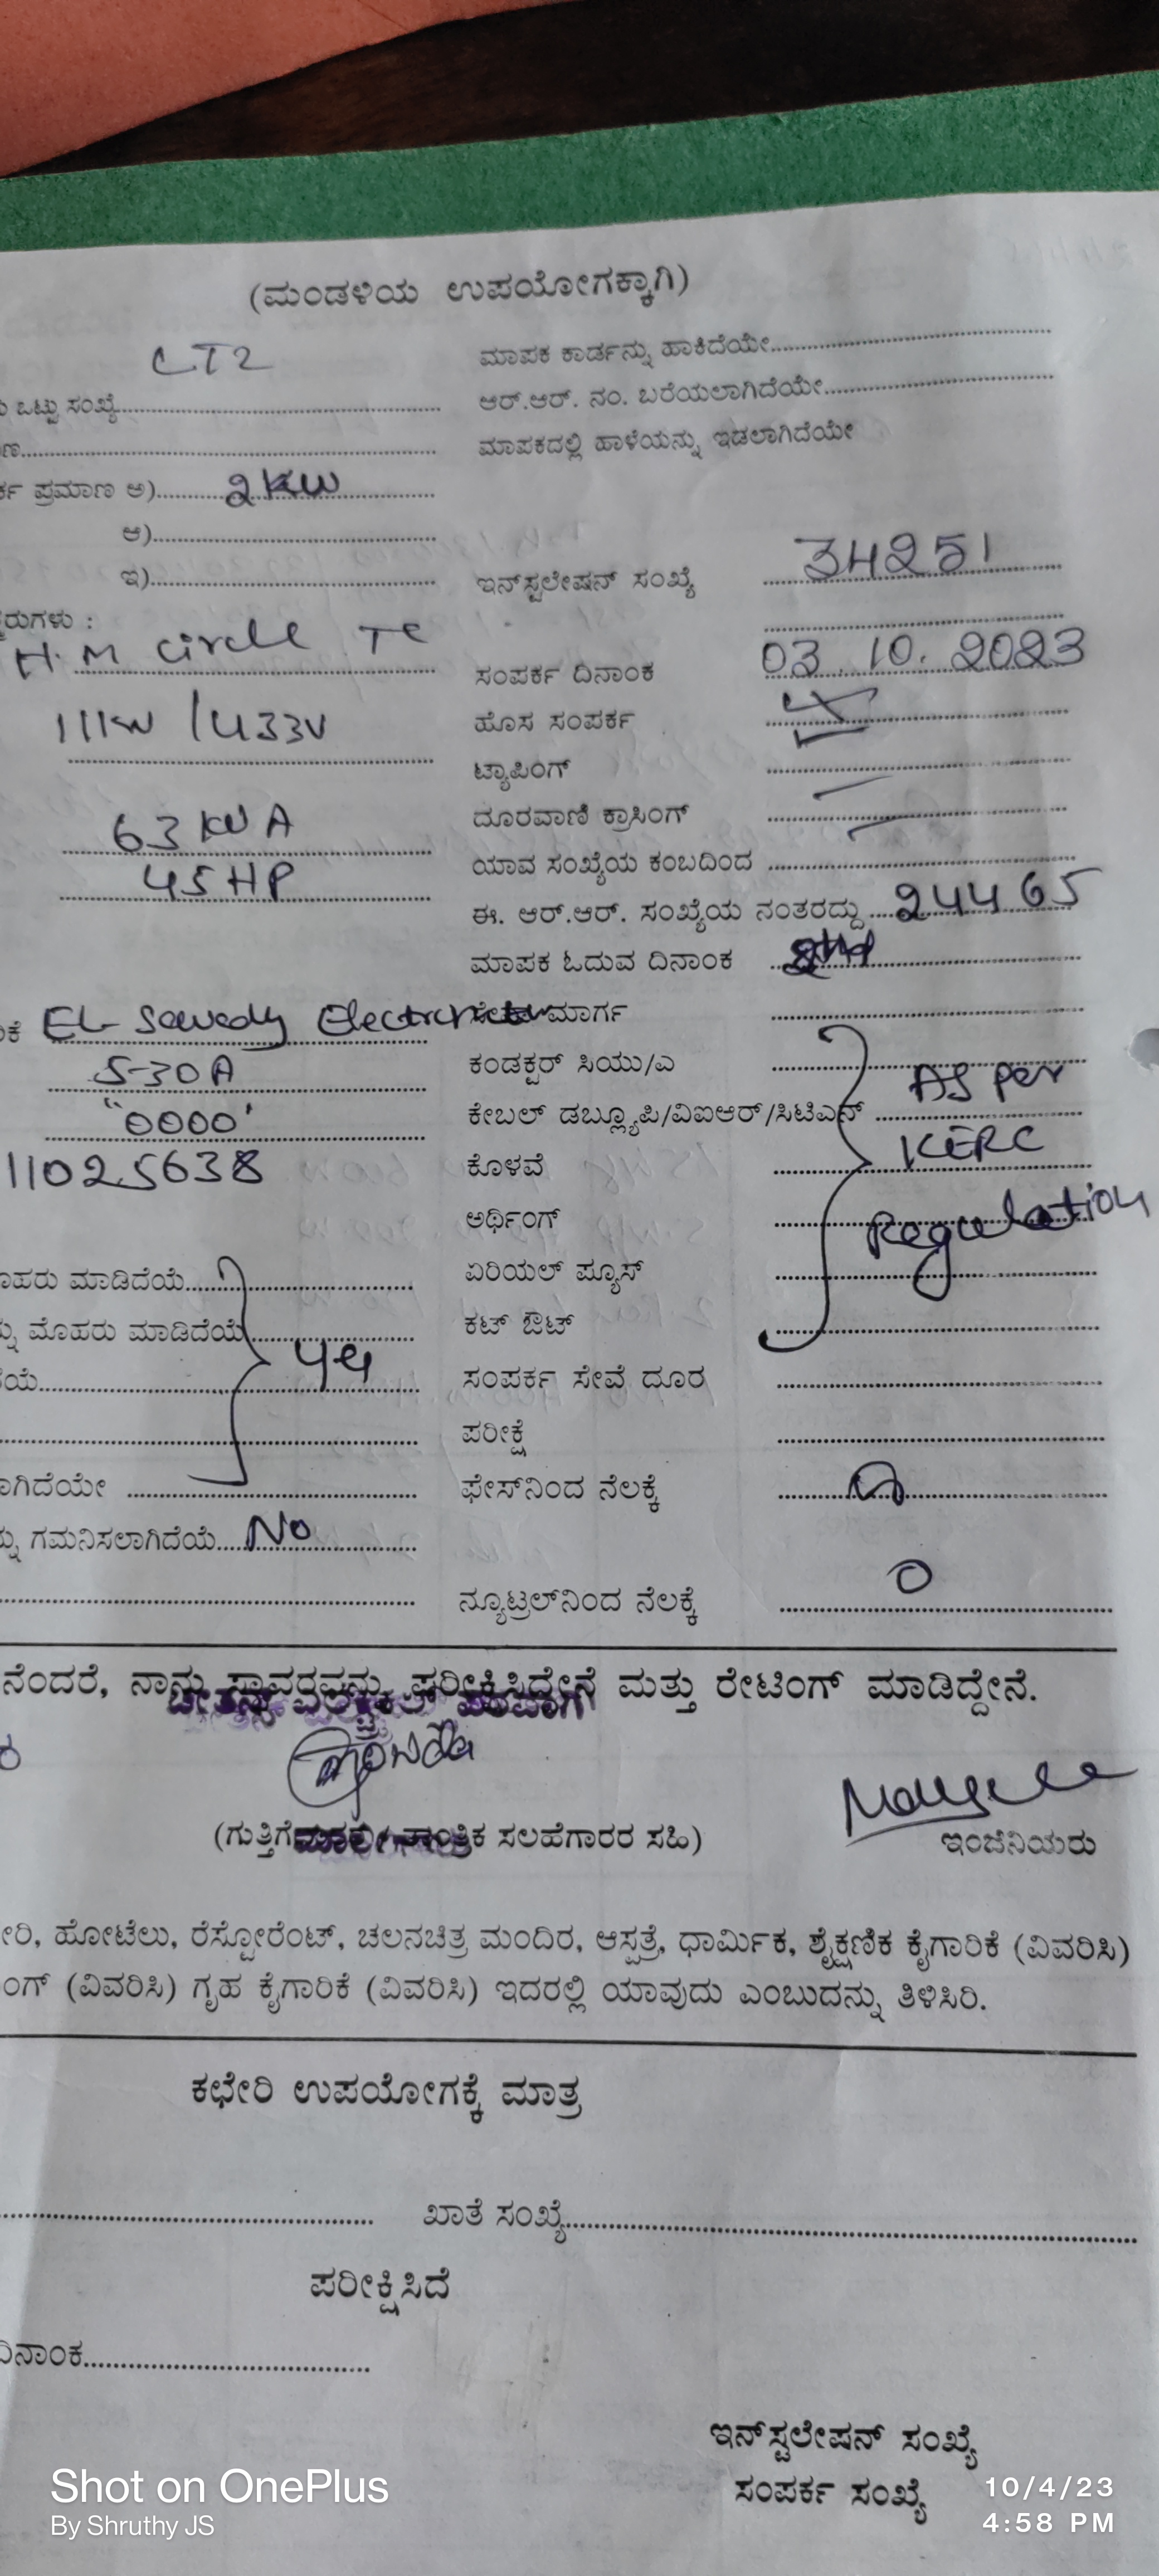 (ಮಂಡಳಿಯ ಉಪಯೋಗಕ್ಕಾಗಿ)
LT2
ಮಾಪಕ ಕಾರ್ಡನ್ನು ಹಾಕಿದೆಯೇ
ಒಟ್ಟು ಸಂಖ್ಯೆ
ಆರ್.ಆರ್. ನಂ. ಬರೆಯಲಾಗಿದೆಯೇ
ಮಾಪಕದಲ್ಲಿ ಹಾಳೆಯನ್ನು ಇಡಲಾಗಿದೆಯೇ
ಪ್ರಮಾಣ ಅ) 2 KW
ಆ)
ಇ)
ಇನ್‌ಸ್ಟಲೇಷನ್ ಸಂಖ್ಯೆ 34251
H.M Circle TC
ಸಂಪರ್ಕ ದಿನಾಂಕ 03.10.2023
ಹೊಸ ಸಂಪರ್ಕ
ಟ್ಯಾಪಿಂಗ್
63 KVA
ದೂರವಾಣಿ ಕ್ರಾಸಿಂಗ್
45 HP
ಯಾವ ಸಂಖ್ಯೆಯ ಕಂಬದಿಂದ
ಈ. ಆರ್.ಆರ್. ಸಂಖ್ಯೆಯ ನಂತರದ್ದು 24465
ಮಾಪಕ ಓದುವ ದಿನಾಂಕ
EL Sewedy
ಮಾರ್ಗ
5-30A
ಕಂಡಕ್ಟರ್ ಸಿಯು/ಎ
As per
"0000"
ಕೇಬಲ್ ಡಬ್ಲ್ಯೂಪಿ/ವಿಐಆರ್/ಸಿಟಿಎಸ್
KERC
11025638
ಕೊಳವೆ
ಅರ್ಥಿಂಗ್
Regulation
ಮಾಡಿದೆಯೆ
ಏರಿಯಲ್ ಫ್ಯೂಸ್
ಮೊಹರು ಮಾಡಿದೆಯೆ
ಕಟ್ ಔಟ್
ಸಂಪರ್ಕ ಸೇವೆ ದೂರ
ಪರೀಕ್ಷೆ
ಫೇಸ್‌ನಿಂದ ನೆಲಕ್ಕೆ
ಗಮನಿಸಲಾಗಿದೆಯೆ No
ನ್ಯೂಟ್ರಲ್‌ನಿಂದ ನೆಲಕ್ಕೆ 0
ನಾನು ಸ್ಥಾವರವನ್ನು ಪರೀಕ್ಷಿಸಿದ್ದೇನೆ ಮತ್ತು ರೇಟಿಂಗ್ ಮಾಡಿದ್ದೇನೆ.
ಸಲಹೆಗಾರರ ಸಹಿ)
ಇಂಜಿನಿಯರು
ಹೋಟೆಲು, ರೆಸ್ಟೋರೆಂಟ್, ಚಲನಚಿತ್ರ ಮಂದಿರ, ಆಸ್ಪತ್ರೆ, ಧಾರ್ಮಿಕ, ಶೈಕ್ಷಣಿಕ ಕೈಗಾರಿಕೆ (ವಿವರಿಸಿ)
(ವಿವರಿಸಿ) ಗೃಹ ಕೈಗಾರಿಕೆ (ವಿವರಿಸಿ) ಇದರಲ್ಲಿ ಯಾವುದು ಎಂಬುದನ್ನು ತಿಳಿಸಿರಿ.
ಕಛೇರಿ ಉಪಯೋಗಕ್ಕೆ ಮಾತ್ರ
ಖಾತೆ ಸಂಖ್ಯೆ
ಪರೀಕ್ಷಿಸಿದೆ
ದಿನಾಂಕ
ಇನ್‌ಸ್ಟಲೇಷನ್ ಸಂಖ್ಯೆ
ಸಂಪರ್ಕ ಸಂಖ್ಯೆ
Shot on OnePlus
By Shruthy JS
10/4/23
4:58 PM